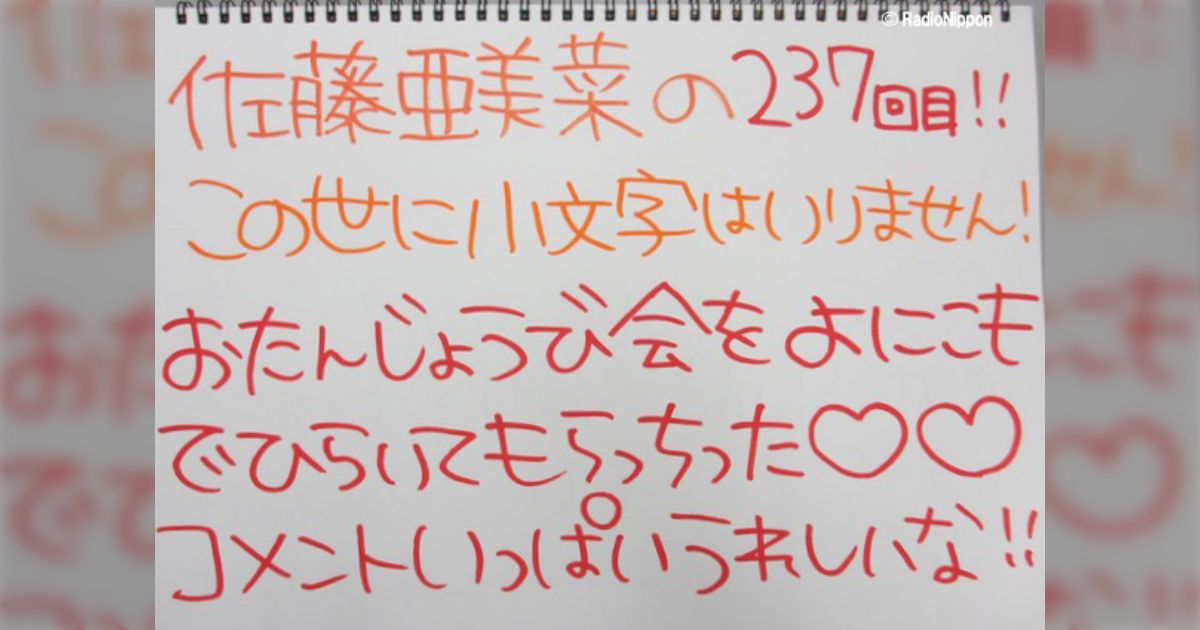 © RadioNippon
佐藤亜美菜の237回目!!
この世に小文字はいりません!
おたんじょうび会をよにこも
でひらいてもらっちった♡♡
コメントいっぱいうれしいな!!